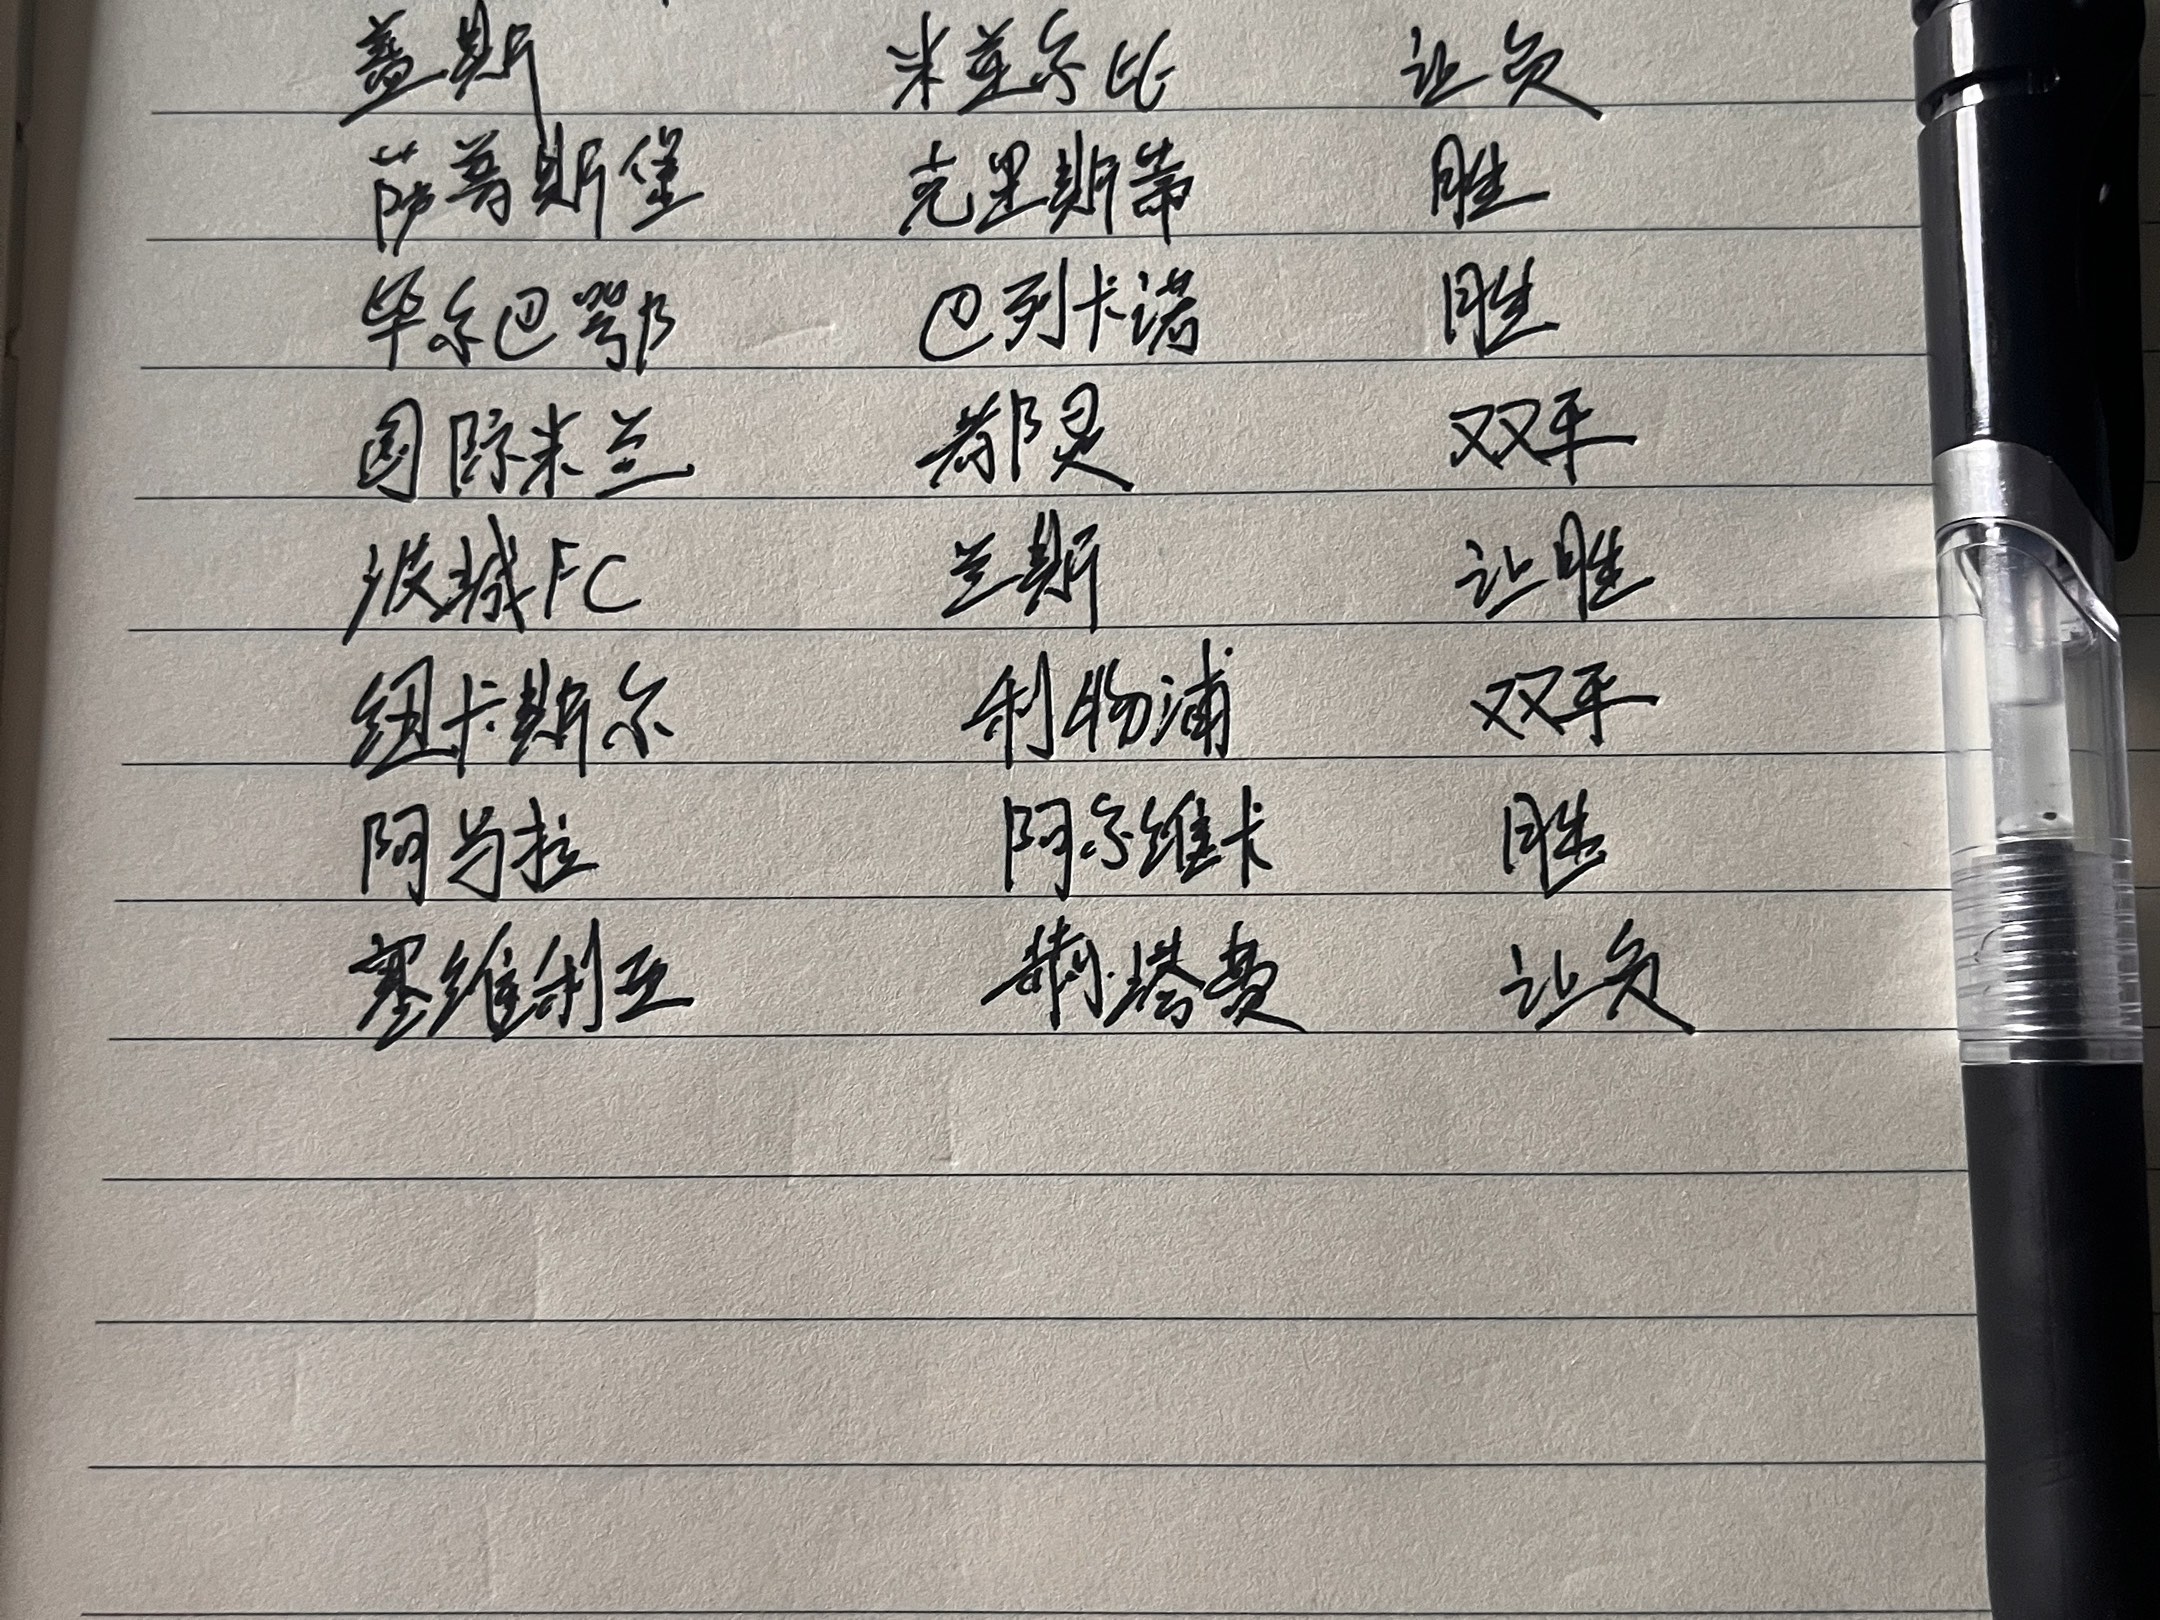 盖斯 米亚尔比 让负
萨普斯堡 克里斯蒂 胜
毕尔巴鄂 巴列卡诺 胜
国际米兰 都灵 双平
波城FC 兰斯 让胜
纽卡斯尔 利物浦 双平
阿马拉 阿尔维卡 胜
塞维利亚 赫塔费 让负